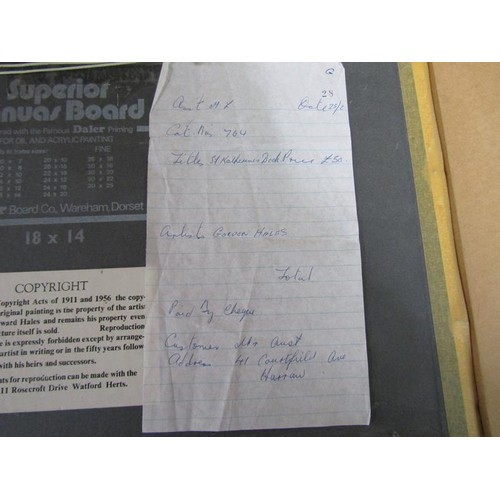 Superior
nvas Board
ed with the Famous Daler Priming
FOR OIL AND ACRYLIC PAINTING
FINE
Board Co, Wareham, Dorset
18 x 14
COPYRIGHT
Copyright Acts of 1911 and 1956 the copy-
riginal painting is the property of the artis
ward Hales and remains his property even
icture itself is sold. Reproduction
e is expressly forbidden except by arrange-
artist in writing or in the fifty years follow
with his heirs and successors.
ts for reproduction can be made with the
11 Rosecroft Drive Watford Herts.
28
Date
Cat No. 704
Title St Katherines Dock £50
GORDON HALES
Total
Paid By Cheque
Customer
Address 41 Ave
Harrow